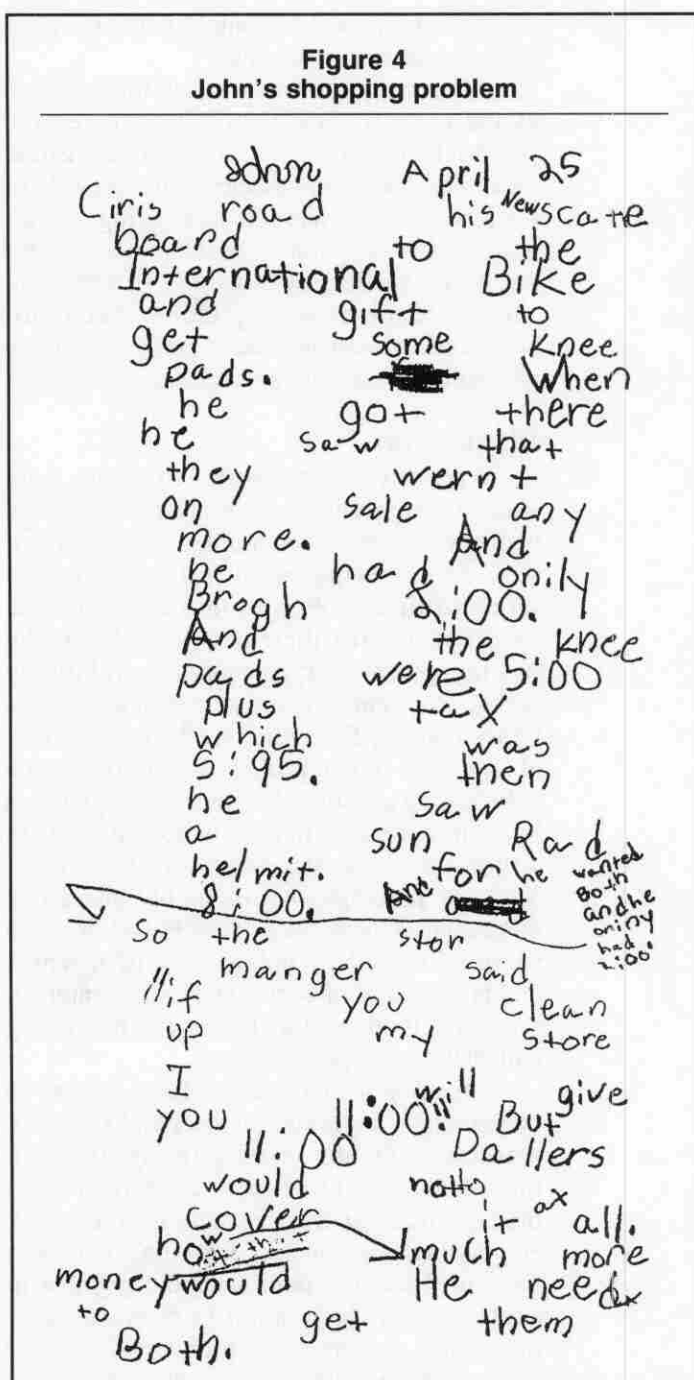 Figure 4
John's shopping problem
John April 25
Ciris road his New scate
board to the
International Bike
and gift to
get some knee
pads. When
he got there
he saw that
they wernt
on sale any
more. And
he had onily
Brogh 2:00.
And the knee
pads were 5:00
plus tax
which was
5:95. then
he saw
a sun Rad
helmit. for he wanted
8:00. And Both
and he
oniny
had
2:00.
so the stor
manger said
"if you clean
up my store
I will give
you 11:00!" But
11:00 Dallers
would notto
cover it all.
how much more
money would He need
to get them
Both.